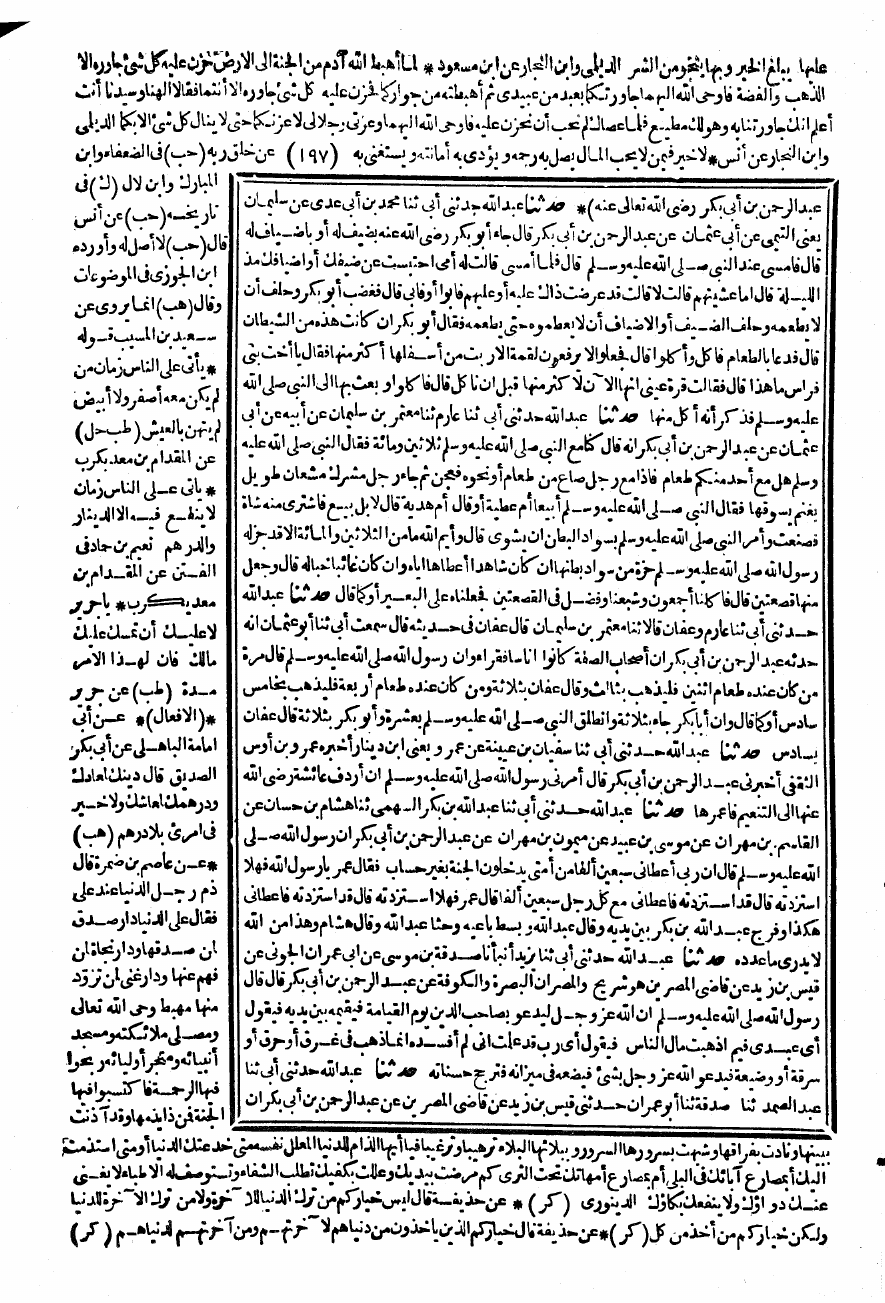 عليها يبلغ الخير وبها ينجو من الشر الديلمى وابن النجار عن ابن مسعود * لما أهبط الله آدم من الجنة الى الارض حزن عليه كل شئ جاوره الا
الذهب والفضة فاوحى الله اليهما جاورتكما بعبد من عبيدى ثم أهبطته من جواركما فحزن عليه كل شئ جاوره الا أنتما فقالا الهنا وسيدنا أنت
أعلم انك جاورتنا به وهو لك مطيع فلما عصاك لم نحب أن نحزن عليه فاوحى الله اليهما وعزتى وجلالى لاعزنكما حتى لا ينال كل شئ الا بكما الديلمى
وابن النجار عن أنس * لا خير فيمن لا يحب المال يصل به رحمه ويؤدى به أمانته ويستغنى به (١٩٧) عن خلق ربه (حب) فى الضعفاء وابن
عبد الرحمن بن أبى بكر رضى الله تعالى عنه)* حدثنا عبد الله حدثنى أبى ثنا محمد بن أبى عدى عن سليمان
يعنى التيمى عن أبى عثمان عن عبد الرحمن بن أبى بكر قال جاء أبو بكر رضى الله عنه بضيف له أو باضياف له
قال فامسى عند النبى صلى الله عليه وسلم قال فلما أمسى قالت له أمى احتبست عن ضيفك أو أضيافك مذ
الليلة قال اما عشيتهم قالت لا قالت قد عرضت ذاك عليه أو عليهم فابوا أو فابى قال فغضب أبو بكر وحلف أن
لا يطعمه وحلف الضيف أو الاضياف أن لا يطعموه حتى يطعمه فقال أبو بكر ان كانت هذه من الشيطان
قال فدعا بالطعام فاكل وأكلوا قال فجعلوا لا يرفعون لقمة الا ربت من أسفلها أكثر منها فقال يا أخت بنى
فراس ما هذا قال فقالت قرة عينى انها الآن لاكثر منها قبل ان نا كل قال فاكلوا وبعث بها الى النبى صلى الله
عليه وسلم فذكر أنه أكل منها حدثنا عبد الله حدثنى أبى ثنا عارم ثنا معتمر بن سليمان عن أبيه عن أبى
عثمان عن عبد الرحمن بن أبى بكر انه قال كنا مع النبى صلى الله عليه وسلم ثلاثين ومائة فقال النبى صلى الله عليه
وسلم هل مع أحد منكم طعام فاذا مع رجل صاع من طعام أو نحوه فعجن ثم جاء رجل مشرك مشعان طويل
بغنم يسوقها فقال النبى صلى الله عليه وسلم أبيعا أم عطية أو قال أم هدية قال لا بل بيع فاشترى منه شاة
فصنعت وأمر النبى صلى الله عليه وسلم بسواد البطن ان يشوى قال وأيم الله ما من الثلاثين والمائة الا قد حز له
رسول الله صلى الله عليه وسلم حزة من سواد بطنها ان كان شاهدا أعطاها اياه وان كان غائبا خبا له قال وجعل
منها قصعتين قال فاكلنا أجمعون وشبعنا وفضل فى القصعتين فجعلناه على البعير أو كما قال حدثنا عبد الله
حدثنى أبى ثنا عارم وعفان قالا ثنا معتمر بن سليمان قال عفان فى حديثه قال سمعت أبى ثنا أبو عثمان انه
حدثه عبد الرحمن بن أبى بكر ان أصحاب الصفة كانوا اناسا فقراء وان رسول الله صلى الله عليه وسلم قال مرة
من كان عنده طعام اثنين فليذهب بثالث وقال عفان بثلاثة ومن كان عنده طعام أربعة فليذهب بخامس
سادس أو كما قال وان أبا بكر جاء بثلاثة وانطلق النبى صلى الله عليه وسلم بعشرة وأبو بكر بثلاثة قال عفان
بسادس حدثنا عبد الله حدثنى أبى ثنا سفيان بن عيينة عن عمرو يعنى ابن دينار أخبره عمرو بن أوس
الثقفى أخبرنى عبد الرحمن بن أبى بكر قال أمرنى رسول الله صلى الله عليه وسلم ان أردف عائشة رضى الله
عنها الى التنعيم فاعمرها حدثنا عبد الله حدثنى أبى ثنا عبد الله بن بكر السهمى ثنا هشام بن حسان عن
القاسم بن مهران عن موسى بن عبيد عن ميمون بن مهران عن عبد الرحمن بن أبى بكر ان رسول الله صلى
الله عليه وسلم قال ان ربى أعطانى سبعين ألفا من أمتى يدخلون الجنة بغير حساب فقال عمر يا رسول الله فهلا
استزدته قال قد استزدته فاعطانى مع كل رجل سبعين ألفا قال عمر فهلا استزدته قال قد استزدته فاعطانى
هكذا وفرج عبد الله بن بكر بين يديه وقال عبد الله وبسط باعيه وحثا عبد الله وقال هشام وهذا من الله
لا يدرى ما عدده حدثنا عبد الله حدثنى أبى ثنا يزيد أنبأنا صدقة بن موسى عن ابى عمران الجونى عن
قيس بن زيد عن قاضى المصرين هو شريح والمصران البصرة والكوفة عن عبد الرحمن بن أبى بكر قال قال
رسول الله صلى الله عليه وسلم ان الله عز وجل ليدعو بصاحب الدين يوم القيامة فيقيمه بين يديه فيقول
أى عبدى فيم اذهبت مال الناس فيقول أى رب قد علمت انى لم أفسده انما ذهب فى غرق أو حرق أو
سرقة أو وضيعة فيدعو الله عز وجل بشئ فيضعه فى ميزانه فترجح حسناته حدثنا عبد الله حدثنى أبى ثنا
عبد الصمد ثنا صدقة ثنا أبو عمران حدثنى قيس بن زيد عن قاضى المصرين عن عبد الرحمن بن أبى بكر ان
المبارك وابن لال (ك) فى
تاريخه (حب) عن أنس
قال (حب) لا أصل له وأورده
ابن الجوزى فى الموضوعات
وقال (هب) انما يروى عن
سعيد بن المسيب قوله
* يأتى على الناس زمان من
لم يكن معه أصفر ولا أبيض
لم يتهن بالعيش (طب حل)
عن المقدام بن معديكرب
* ياتى على الناس زمان
لا ينفع فيه الا الدينار
والدرهم نعيم بن حماد فى
الفتن عن المقدام بن
معديكرب * يا جرير
لا عليك أن تمسك عليك
مالك فان لهذا الامر
مدة (طب) عن جرير
*(الافعال)* عن أبى
امامة الباهلى عن أبى بكر
الصديق قال دينك لمعادك
ودرهمك لمعاشك ولا خير
فى امرئ بلا درهم (هب)
* عن عاصم بن ضمرة قال
ذم رجل الدنيا عند على
فقال على الدنيا دار صدق
لمن صدقها ودار نجاة لمن
فهم عنها ودار غنى لمن تزود
منها مهبط وحى الله تعالى
ومصلى ملائكته ومسجد
أنبيائه ومتجر أوليائه ربحوا
فيها الرحمة فاكتسبوا فيها
الجنة فمن ذا يذمها وقد آذنت
ببينها ونادت بفراقها وشبهت بسرورها السرور وببلائها البلاء ترهيبا وترغيبا فيا أيها الذام للدنيا المعلل نفسه متى خدعتك الدنيا أو متى استذمت
اليك أبمصارع آبائك فى البلى أم بمصارع أمهاتك تحت الثرى كم مرضت بيديك وعللت بكفيك تطلب الشفاء وتستوصف له الاطباء لا يغنى
عنك دواؤك ولا ينفعك بكاؤك الدينورى (كر) * عن حذيفة قال ليس خياركم من ترك الدنيا للآخرة ولا من ترك الآخرة للدنيا
ولكن خياركم من أخذ من كل (كر) * عن حذيفة قال خياركم الذين ياخذون من دنياهم لآخرتهم ومن آخرتهم لدنياهم (كر)